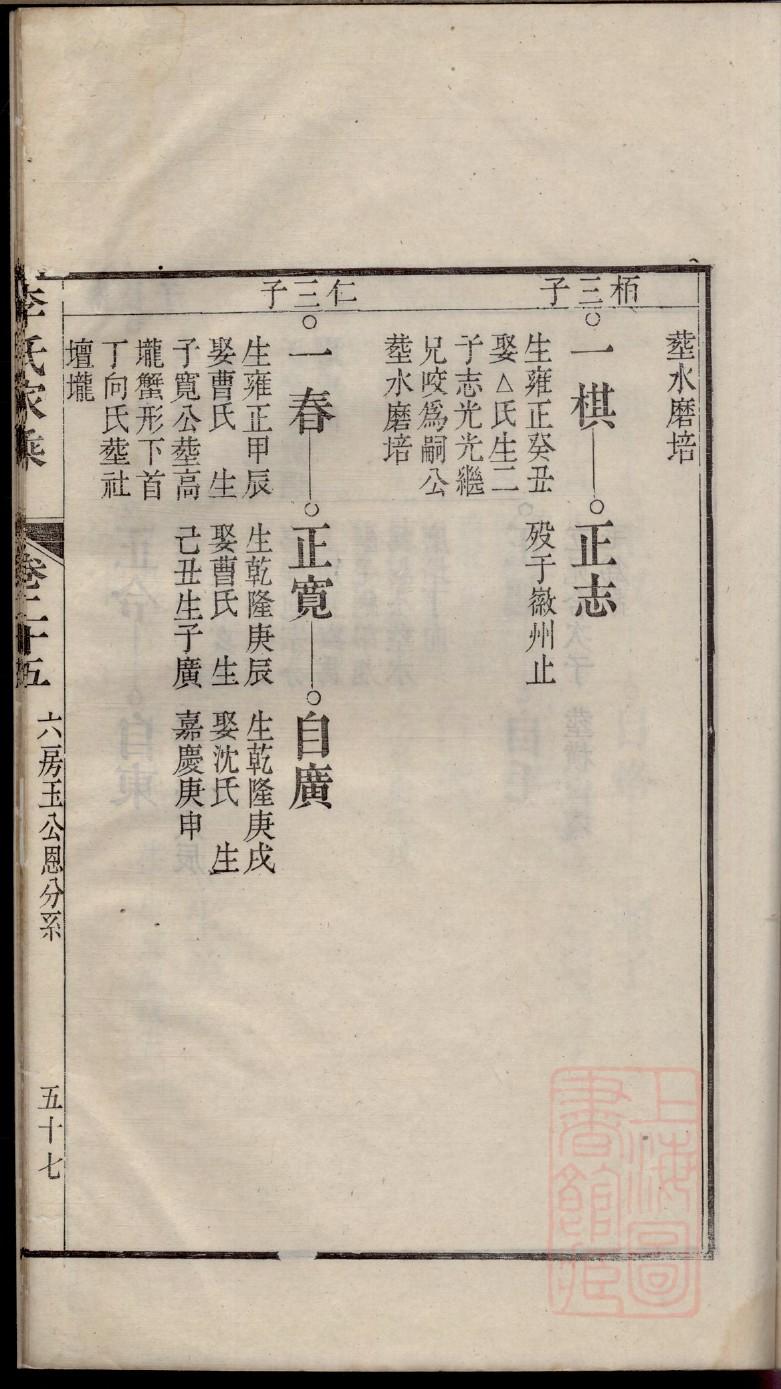 塟水磨培
栢三子
一棋
生雍正癸丑
娶△氏生二
子志光光繼
兄咬爲嗣公
塟水磨培
正志
歿于徽州止
仁三子
一春
生雍正甲辰
娶曹氏 生
子寬公塟高
壠蟹形下首
丁向氏塟社
壇壠
正寬
生乾隆庚辰
娶曹氏 生
己丑生子廣
自廣
生乾隆庚戌
娶沈氏 生
嘉慶庚申
李氏家乘
卷二十五
六房玉公恩分系
五十七
上海圖
書館藏